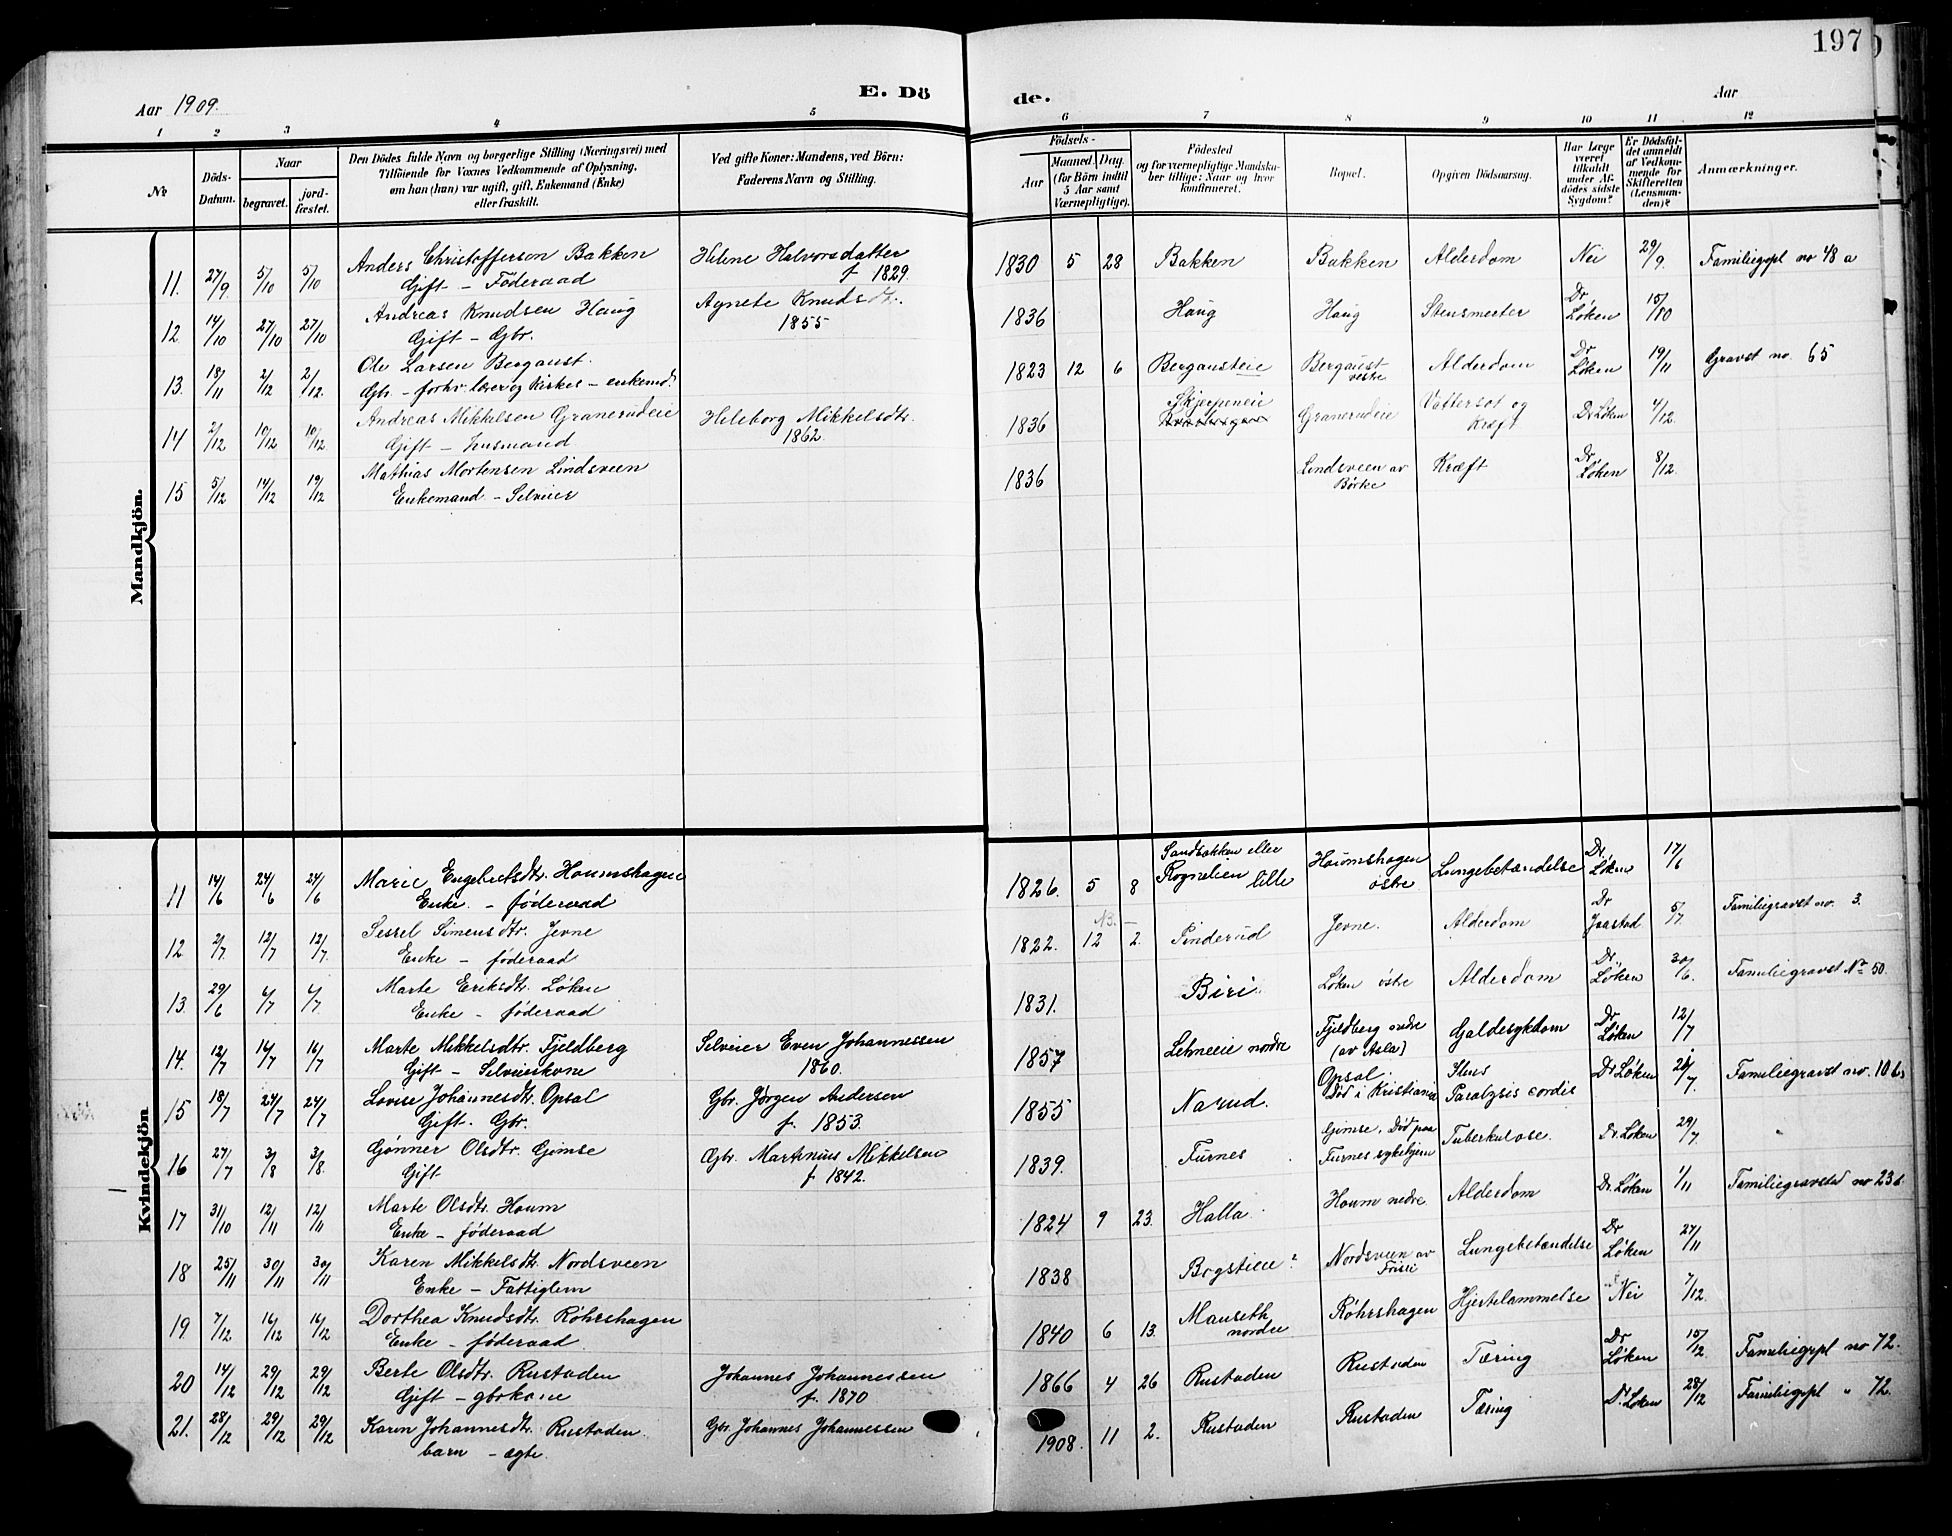 197
Aar 1909.
E. Dö
de.
Aar
1 2 3 4 5 6 7 8 9 10 11 12
No
Döds-Datum.
Naar
begravet.
jord-fæstet.
Den Dödes fulde Navn og borgerlige Stilling (Næringsvei) med
Tilföiende for Voxnes Vedkommende af Oplysning,
om han (hun) var ugift, gift, Enkemand (Enke)
eller fraskilt.
Ved gifte Koner: Mandens, ved Börn:
Faderens Navn og Stilling.
Födsels-
Aar
Maaned. Dag.
(for Börn indtil
5 Aar samt
Værnepligtige).
Födested
og for værnepligtige Mandska-
ber tillige: Naar og hvor
konfirmeret.
Bopæl.
Opgiven Dödsaarsag.
Har Læge
været
tilkaldt
under Af-
dödes sidste
Sygdom?
Er Dödsfal-
det anmeldt
af Vedkom-
mende for
Skifteretten
(Lensman-
den)?
Anmærkninger.
Mandkjön.
11. 27/9 5/10 5/10 Anders Christofferson Bakken Helene Halvorsdatter 1830 5 28 Bakken Bakken Alderdom Nei 29/9. Familiegpl no 48 a
Gift – Föderaad f 1829.
12 14/10 27/10 27/10 Andreas Knudsen Haug Agnete Knudsdt. 1836 Haug Haug Stensmerter Dr Løken 15/10
Gift – Gbr. 1855
13. 18/11 2/12 2/12. Ole Larsen Bergaust. 1823 12 6 Bergausteie Bergaust vestre Alderdom Dr Løken 19/11 Gravst no. 65
Gbr – forhv. lærer og kirkes – enkemd.
14 2/12 10/12 10/12 Andreas Mikkelsen Granerudeie Heleborg Mikkelsdtr. 1836 Skjerpeneie Granerudeie Vattersot og Kræft Dr Løken 4/12
Gift – Husmand 1862.
15 5/12 14/12 19/12 Mathias Mortensen Lindsveen 1836 Lindsveen av Börke Kræft Dr Løken 8/12.
Enkemand – Selveier
Kvindekjön
11 14/6 24/6 24/6 Marie Engebretsdtr. Houmshagen 1826. 5 8 Sandbakken eller Rognelien lille Houmshagen östre Lungebetændelse Dr. Løken 17/6
Enke – föderaad
12 2/7 12/7 12/7 Sessel Simensdtr. Jevne 1822. 12 2. Pinderud Jevne. Alderdom Dr Jaastad 5/7 Familiegravst no. 3.
Enke – föderaad
13. 29/6 4/7 4/7. Marte Eriksdtr. Løken 1831. Biri Løken östre Alderdom Dr. Løken 30/6. Familiegravst No 50.
Enke – föderaad
14. 12/7 14/7 16/7 Marte Mikkelsdtr. Fjeldberg Selveier Even Johannessen 1857 Lehneeie nordre Fjeldberg nedre (av Asla) Galdesykdom Dr Løken 12/7
Gift – Selveierkone 1860.
15 18/7 24/7 24/7 Lovise Johannesdtr. Opsal Gbr. Jørgen Andersen 1855 Narud. Opsal. Död i Kristiania Paralysis cordis Dr Løken 20/7 Familiegravst no. 10 b
Gift. Gbr. f. 1853.
16 27/7 3/8 3/8. Gønner Olsdtr. Gimse Gbr. Martinius Mikkelsen 1839. Furnes Gimse. Död paa Furnes sykehjem Tuberkulose. Dr. Løken 29/7
Gift f 1842.
17 31/10 12/11 12/11 Marte Olsdtr. Houm 1824 9 23. Halla Houm nedre. Alderdom Dr. Løken 1/11 Familiegravsted no 23 b
Enke – föderaad
18 25/11 30/11 30/11 Karen Mikkelsdtr. Nordsveen 1838 Bogstieie? Nordsveen av Lungebetændelse Dr Løken 27/11
Enke – Fattiglem
19 7/12 16/12 16/12 Dorthea Knudsdtr. Röhrshagen 1840 6 13. Mauseth nordre Röhrshagen Hjertelammelse Nei 7/12.
Enke – föderaad
20 14/12 29/12 29/12 Berte Olsdtr. Rustaden Johannes Johannessen 1866 4 26 Rustaden Rustaden Tæring Dr Løken 15/12. Familiegpl no 72.
Gift – gbrkone f. 1870
21. 28/12 29/12 29/12 Karen Johannesdtr. Rustaden. Gbr. Johannes Johannessen 1908. 11 2. Rustaden Rustaden Tæring Dr. Løken 28/12 Familiegpl " 72.
barn – ægte.